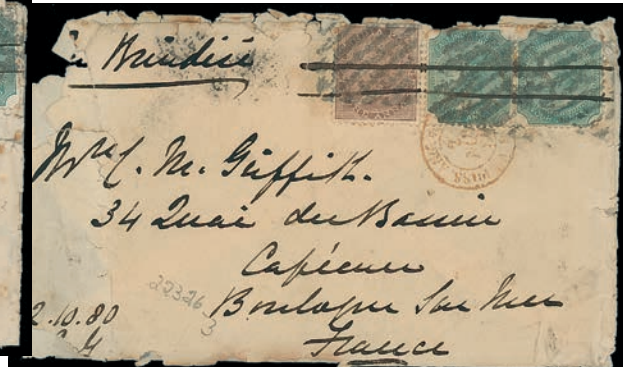 Brindisi
Mrs C. M. Griffith.
34 Quai du Bassin
Capécure
Boulogne Sur Mer
France
2.10.80
22326
3